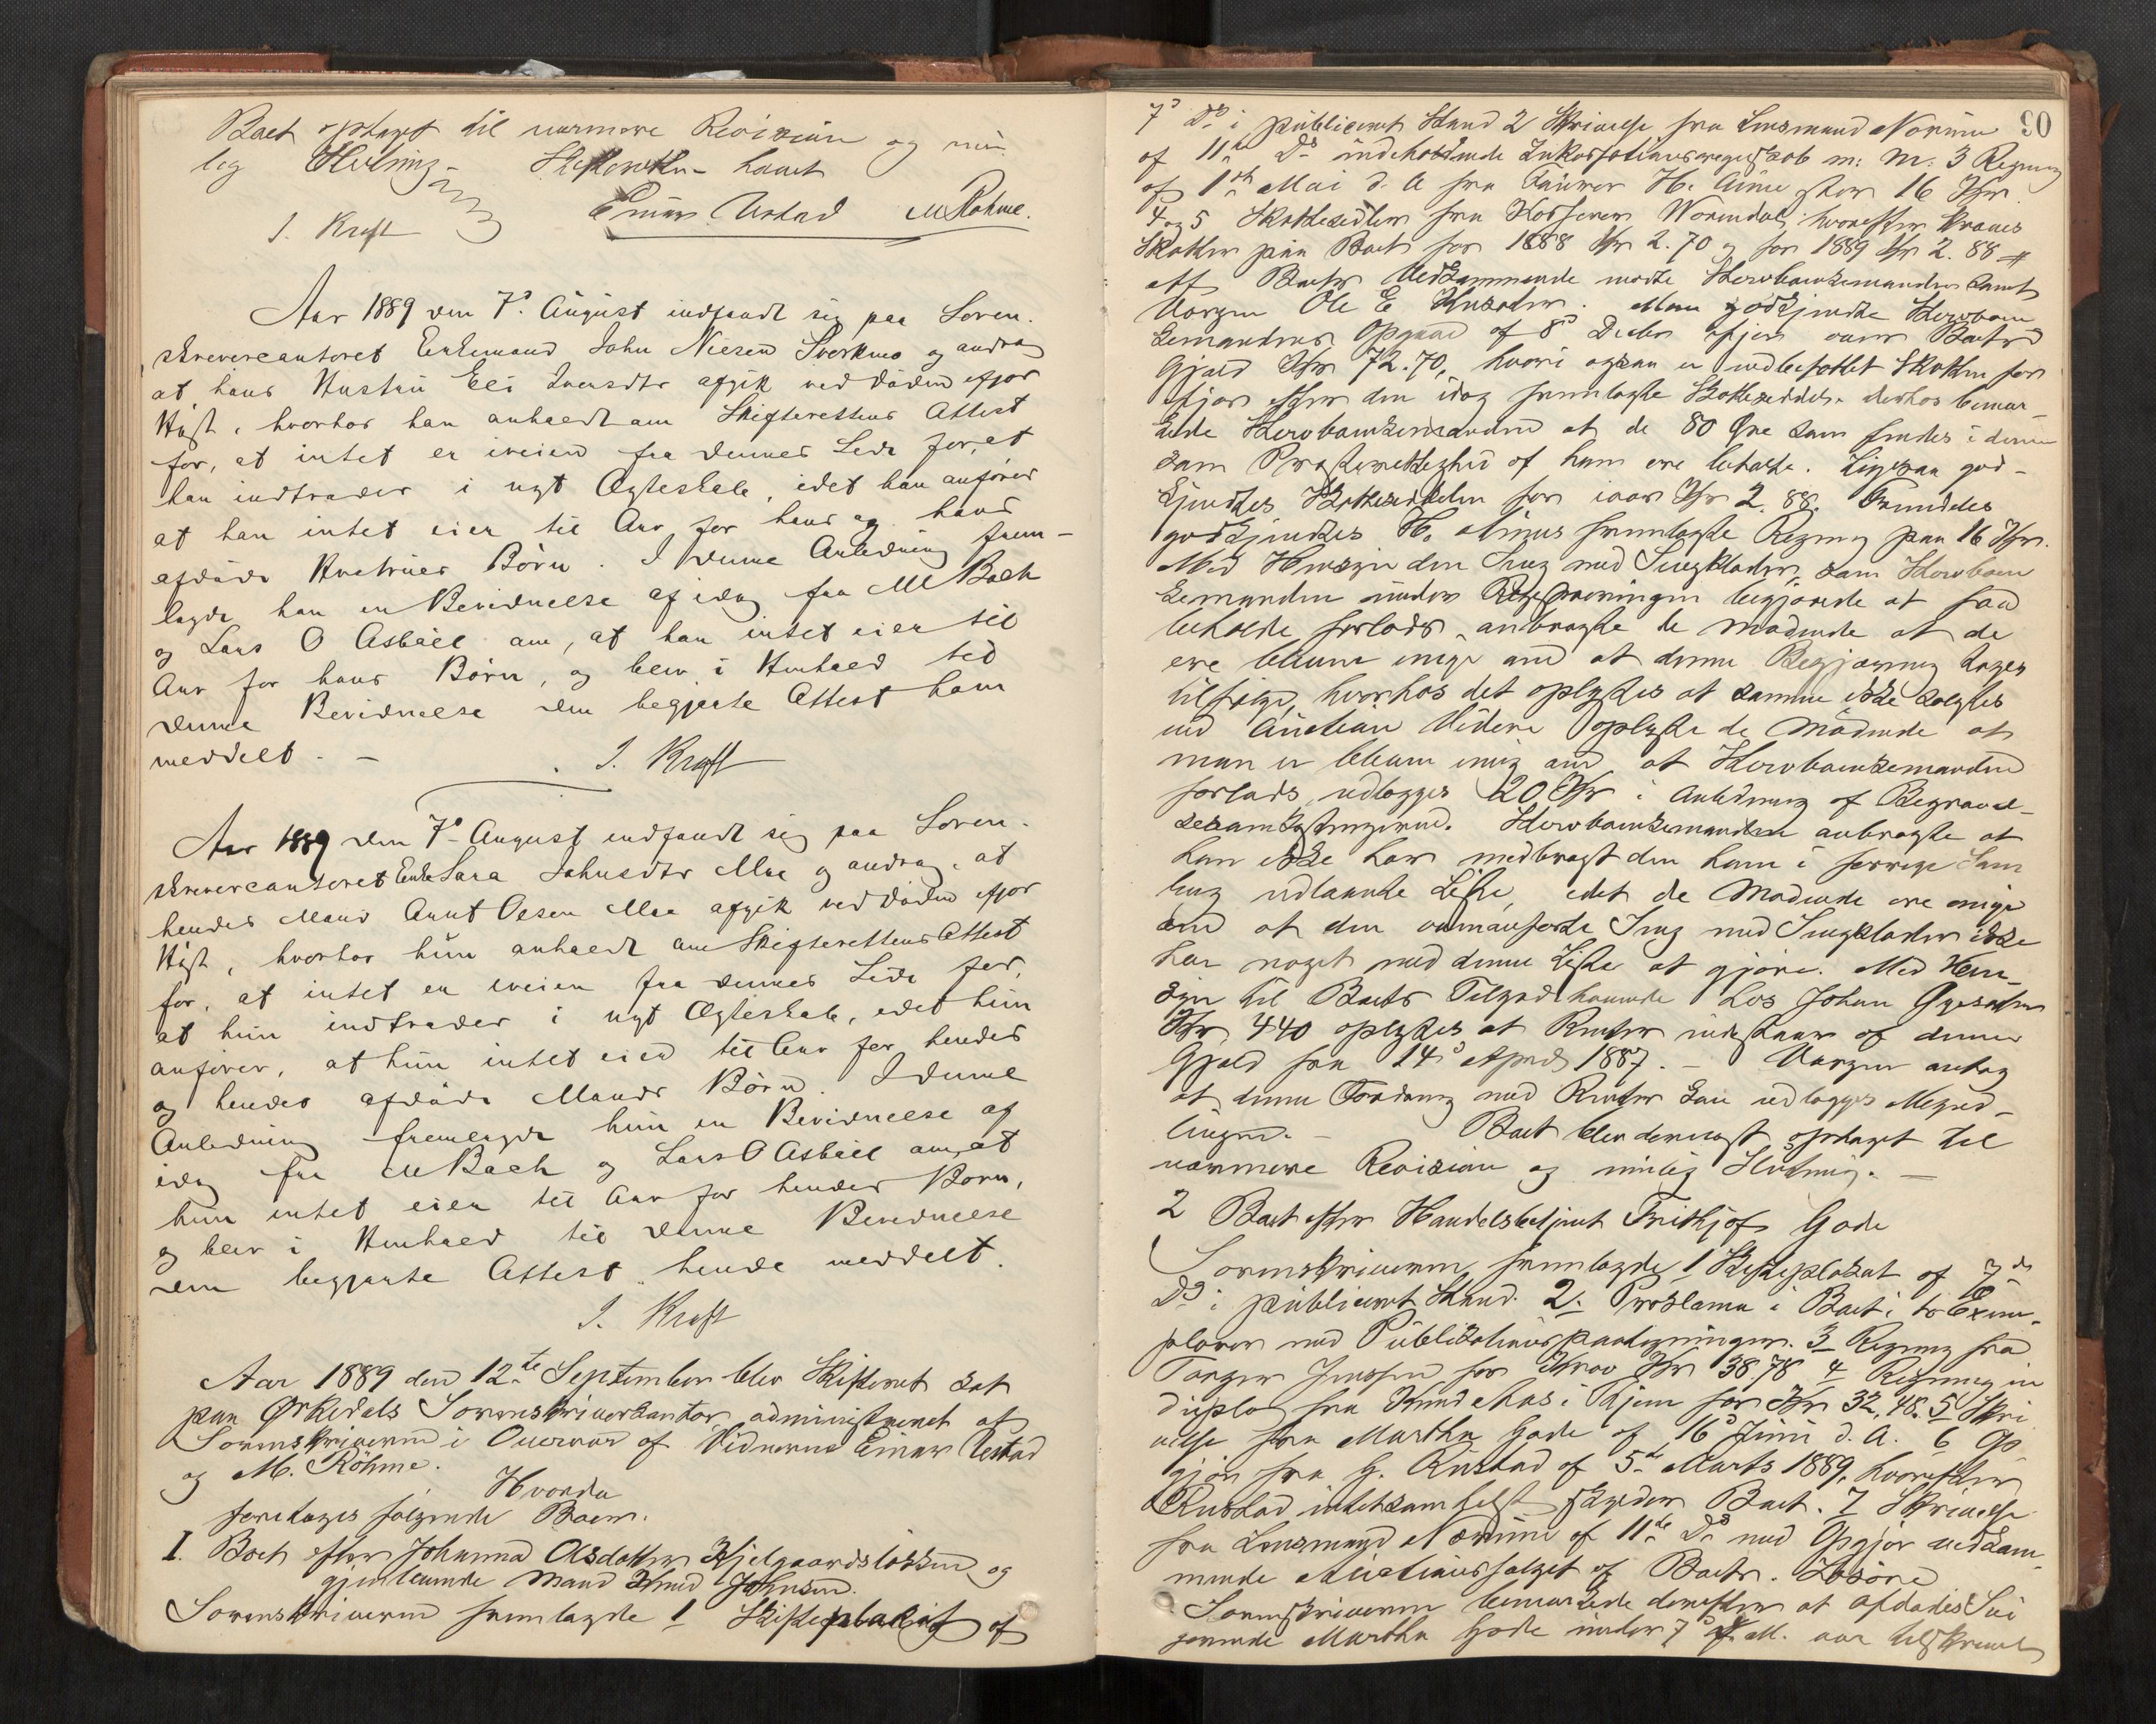 Boet optaget til nærmere Revision og min
lig Slutning - Skifteretten hævet
J. Kraft Einar Ustad M Røhme.
Aar 1889 den 7de August indfandt sig paa Soren-
skrivercontoret Enkemand John Nilsen Sverkmo og androg
at hans Hustru Eli Iversdtr afgik ved døden ifjor
Høst, hvorhos han anholdt om Skifterettens Attest
for, at intet er iveien fra dennes Side for, at
han indtræder i nyt Ægteskab, idet han anfører
at han intet eier til Arv for hans og hans
afdøde Hustrues Børn. I denne Anledning frem-
lagde han en Bevidnelse af idag fra M Bach
og Lars O Asbøll om, at han intet eier til
Arv for hans Børn, og blev i Henhold til
denne Bevidnelse den begjærte Attest ham
meddelt. -
J. Kraft
Aar 1889 den 7de August indfandt sig paa Soren-
skrivercontoret Enke Sara Johnsdtr Moe og androg, at
hendes Mand Arnt Olsen Moe afgik ved døden ifjor
Høst, hvorhos hun anholdt om Skifterettens Attest
for, at intet er iveien fra dennes Side for,
at hun indtræder i nyt Ægteskab, idet hun
anfører, at hun intet eier til Arv for hendes
og hendes afdøde Mands Børn. I denne
Anledning fremlagde hun en Bevidnelse af
idag fra M Bach og Lars O Asbøll om, at
hun intet eier til Arv for hendes Børn,
og blev i Henhold til denne Bevidnelse
den begjærte Attest hende meddelt.
J. Kraft
Aar 1889 den 12te September blev Skifteret sat
paa Orkedals Sorenskriverkontor administreret af
Sorenskriveren i Overvær af Vidnerne Einar Ustad
og M. Röhme.
Hvorda
foretoges følgende Boer.
I. Boet efter Johanna Olsdatter Kjelgaardsløkken og
gjenlevende Mand Knud Johnsen.
Sorenskriveren fremlagde 1 Skifteplakat af
90
7de Ds i publiceret Stand 2 Skrivelse fra Lensmand Norum
af 11te Ds indeholdende Inkassationsregnskab m. m. 3 Regning
af 1ste Mai d. A fra H. Aune stor 16 Kr.
4 og 5 Skattesedler fra Kasserer Wormdal, hvorefter kræves
Skatter paa Boet for 1888 Kr 2.70 og for 1889 Kr 2.88
Af Boets Vedkommende mødte Stervboenkemanden samt
Værgen Ole E Knudsen. Man godkjendte Stervboen
kemandens Opgave af 8de Decbr ifjor over Boets
Gjæld Kr 72.70, hvori ogsaa er indbefattet Skatten for
ifjor efter den idag fremlagte Skatteseddel. derhos bemær-
kede Stervboenkemanden at de 80 Øre som findes i denne
som Presterettighed af ham ere betalte. Ligesaa god-
kjendtes Skatteseddelen for iaar Kr 2.88. Fremdeles
godkjendtes H. Aunes fremlagte Regning paa 16 Kr.
Med Hensyn den Seng med Sengklæder, som Stervboen
kemanden under begjærede at faa
beholde forlods, anbragte de mødende at de
ere blevne enige om at denne Begjæring tages
tilfølge, hvorhos det oplystes at samme ikke solgtes
ved Auction Videre oplyste de Mødende at
man er bleven enig om, at Stervboenkemanden
forlods udlægges 20 Kr i Anledning af Begravel-
sesomkostningerne. Stervboenkemanden anbragte at
han ikke har medbragt den ham i forrige Sam
ling udlaante Liste, idet de Mødende ere enige
om at den ovenanførte Seng med Sengklæder ikke
har noget med denne Liste at gjøre. Med Hen-
syn til Boets Tilgodehavende hos Johan
Kr 440 oplystes at Renter indestaar af denne
Gjæld fra 14de April 1887. - Værgen antog
at denne Fordring med Renter kan udlægges Mynd-
lingen. - Boet blev dernæst optaget til
nærmere Revision og mulig Slutning. -
2 Boet efter Handelsbetjent Frithjof Gode
Sorenskriveren fremlagde 1 Skifteplakat af 7de
Ds i publiceret Stand. 2. Proklama i Boet i to Exem-
plarer med Publikationspaategninger. 3 Regning fra
Torger Jenssen for Krav Kr 38.78 4 Regning in
duplo fra Knud Aas i for Kr 32,48. 5 Skri
velse fra Martha Gode af 16de Juni d. A. 6 Op
gjør fra G. Rustad af 5te Marts 1889, hvorefter
Rustad intetsomhelst skylder Boet. 7 Skrivelse
fra Lensmand Norum af 11te Ds med Opgjør vedkom-
mende Auctionssalget af Boets Løsøre
Sorenskriveren bemærkede derefter at afdødes
Martha Gode under 7de d. M. var tilskrevet